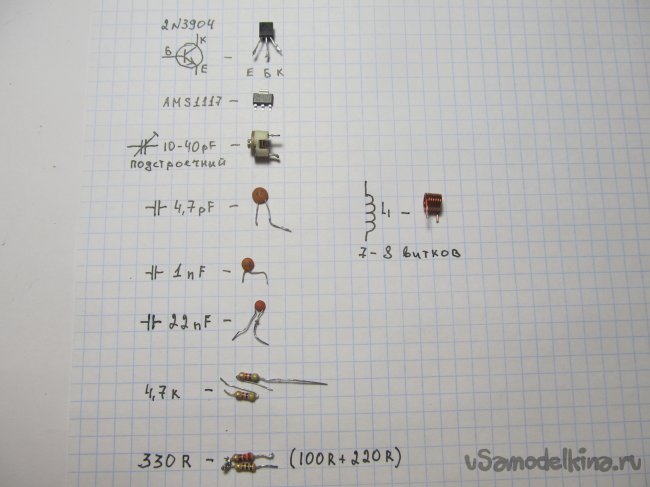 2N3904
К
Б
Е
Е Б К
AMS1117 -
10-40pF -
подстроечный
4,7pF -
L1 -
7-8 витков
1nF -
22nF -
4,7к -
330R - (100R+220R)
vSamodelkina.ru